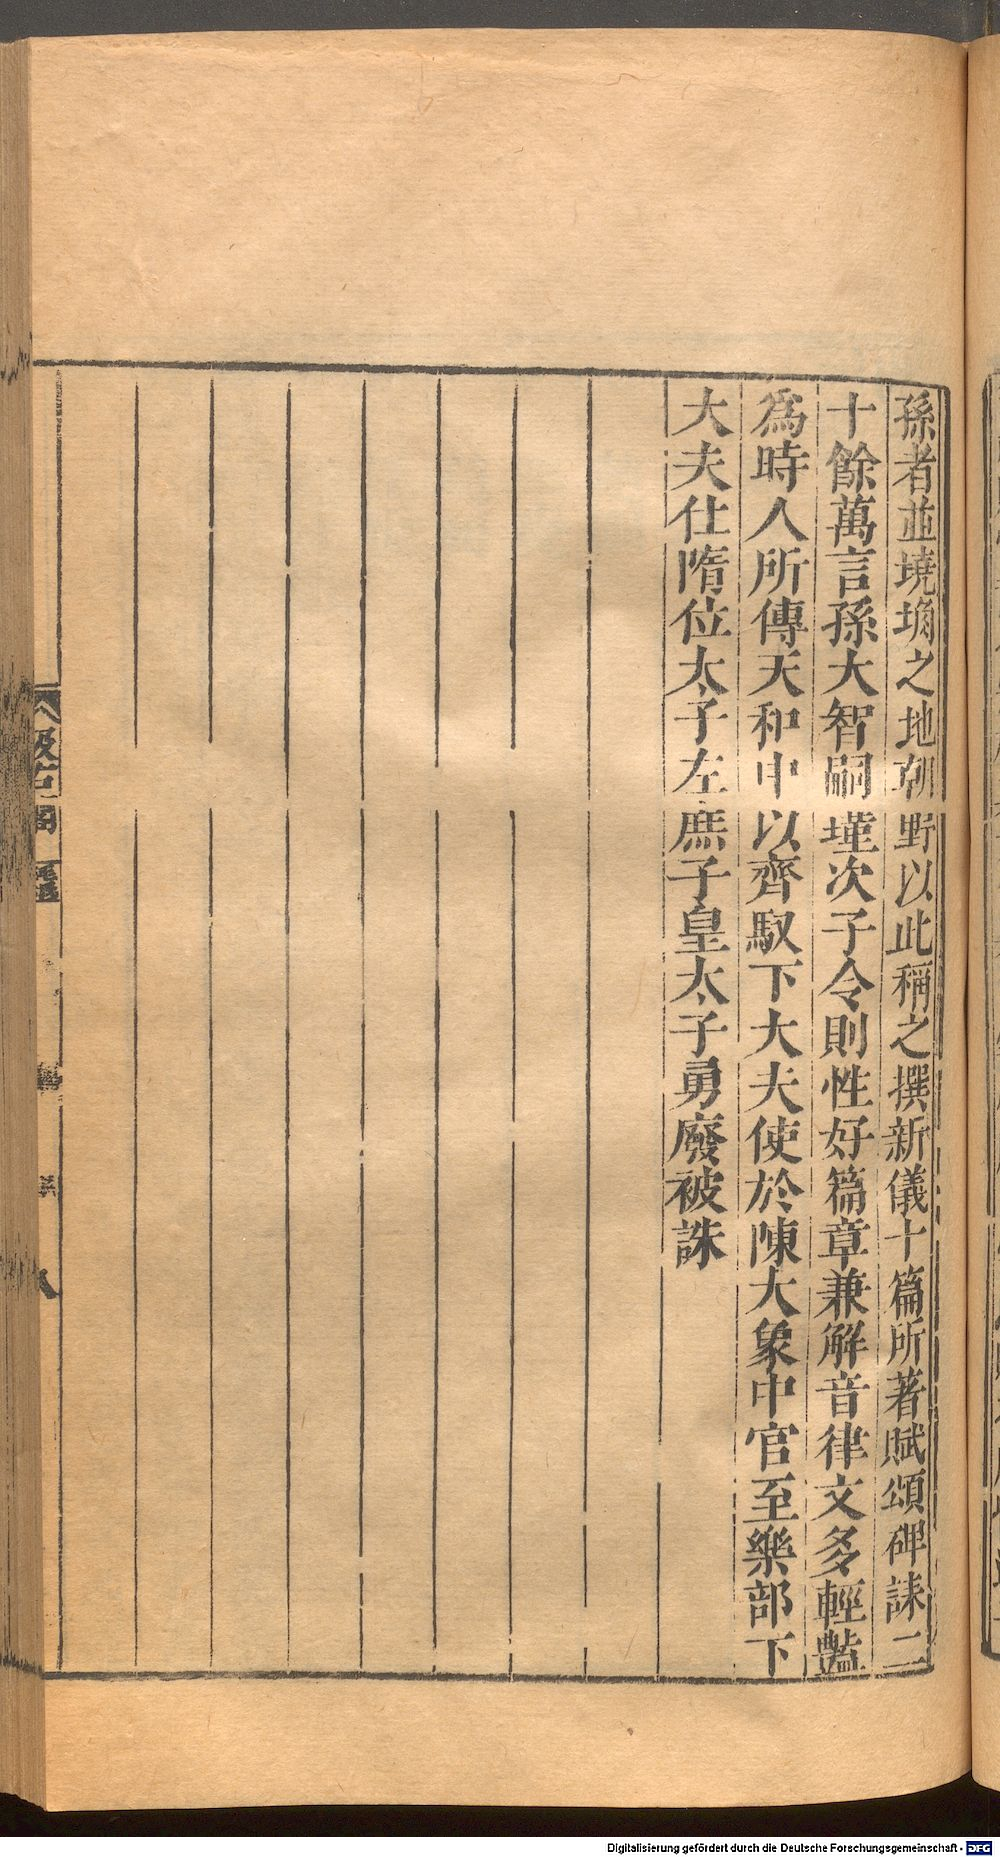 孫者並墝埆之地朝野以此稱之撰新儀十篇所著賦頌碑誄二
十餘萬言孫大智嗣瑾次子令則性好篇章兼解音律文多輕豔
爲時人所傳天和中以齊馭下大夫使於陳大象中官至樂部下
大夫仕隋位太子左庶子皇太子勇廢被誅
汲古閣
Digitalisierung gefördert durch die Deutsche Forschungsgemeinschaft - DFG